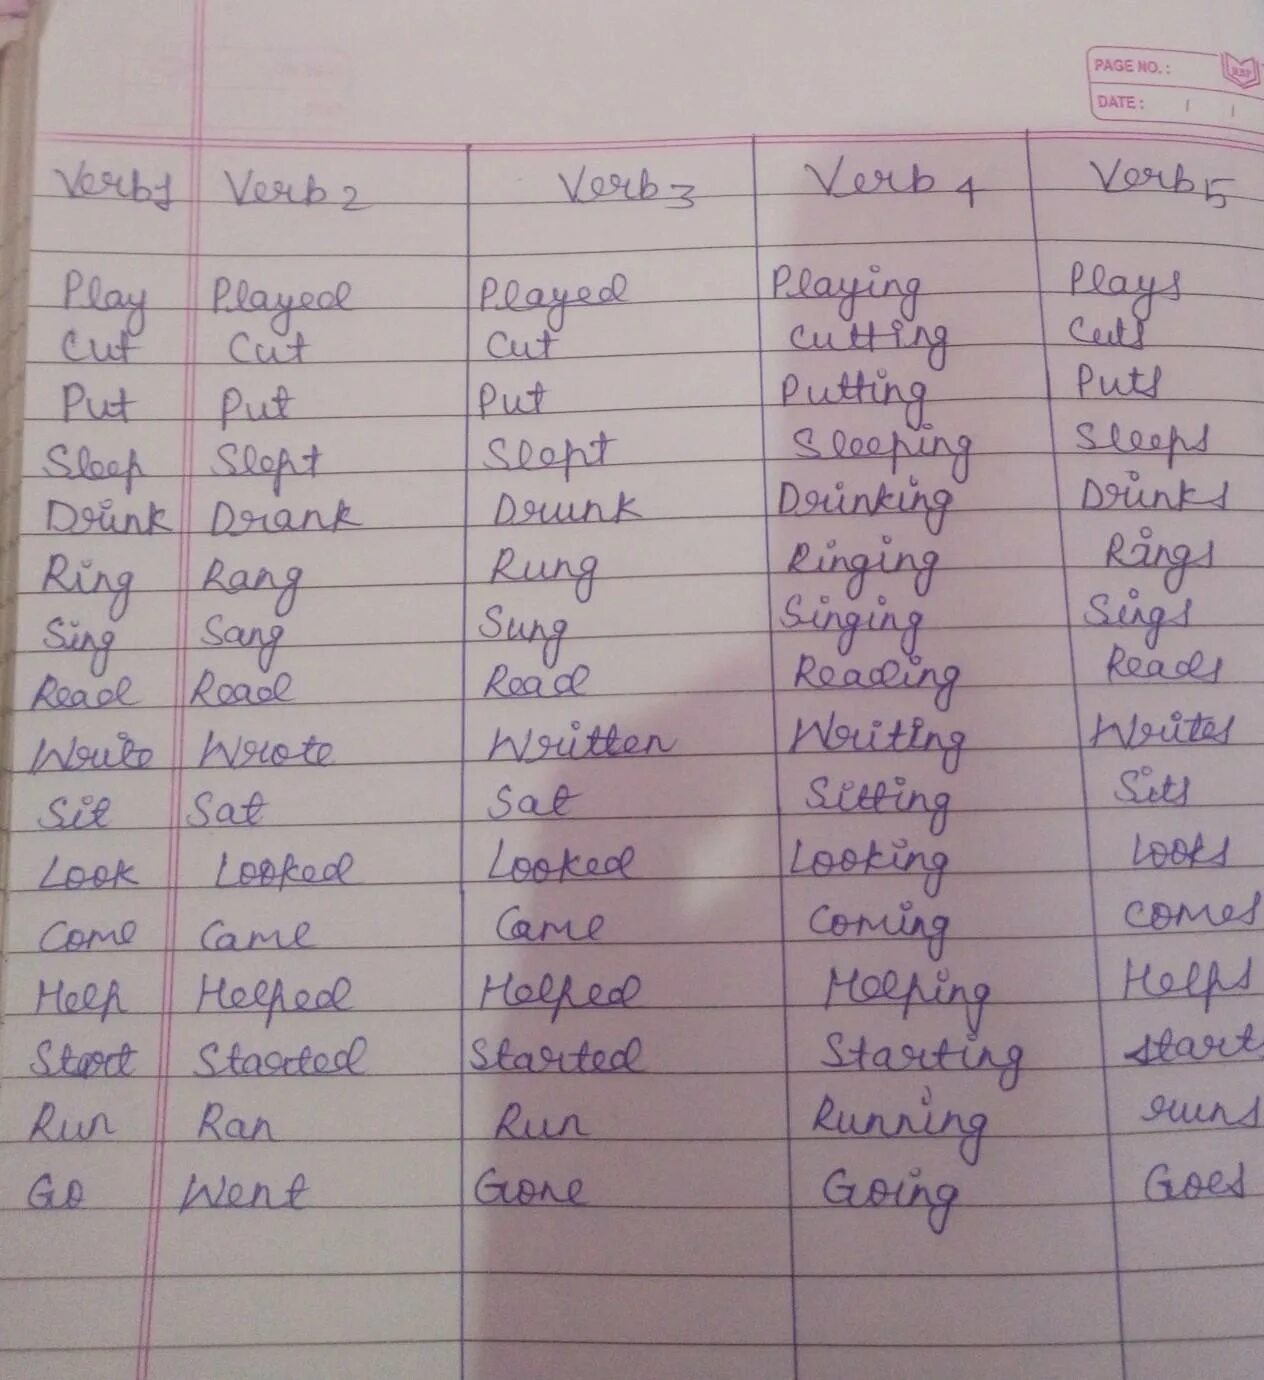 PAGE NO. :
DATE : / /
Verb1 Verb 2 Verb 3 Verb 4 Verb 5
Play Played Played Playing Plays
Cut Cut Cut Cutting Cuts
Put Put Put Putting Puts
Sleep Slept Slept Sleeping Sleeps
Drink Drank Drunk Drinking Drinks
Ring Rang Rung Ringing Rings
Sing Sang Sung Singing Sings
Read Read Read Reading Reads
Write Wrote Written Writing Writes
Sit Sat Sat Sitting Sits
Look Looked Looked Looking Looks
Come Came Came Coming Comes
Help Helped Helped Helping Helps
Start Started Started Starting start
Run Ran Run Running runs
Go Went Gone Going Goes